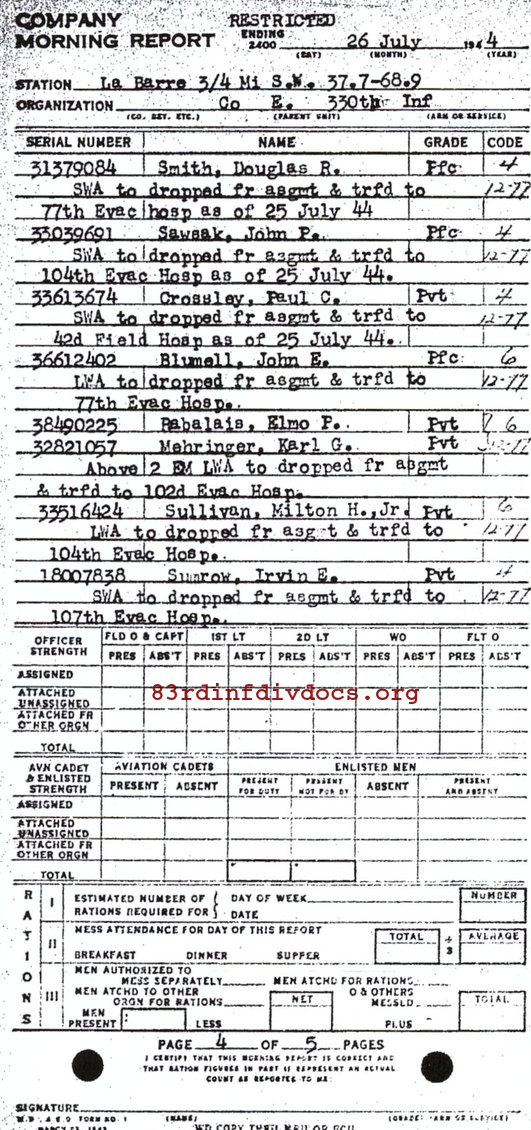 COMPANY RESTRICTED
MORNING REPORT ENDING 2400 26 July 1944
(DAY) (MONTH) (YEAR)
STATION La Barre 3/4 Mi S.W. 37.7-68.9
ORGANIZATION Co E. 330th Inf
(CO. DET. ETC.) (PARENT UNIT) (ARM OR SERVICE)
SERIAL NUMBER NAME GRADE CODE
31379084 Smith, Douglas R. Pfc 4
SWA to dropped fr asgmt & trfd to 12-77
77th Evac hosp as of 25 July 44
33039691 Sawsak, John P. Pfc 4
SWA to dropped fr asgmt & trfd to 12-77
104th Evac Hosp as of 25 July 44.
33613674 Crossley, Paul C. Pvt 4
SWA to dropped fr asgmt & trfd to 12-77
42d Field Hosp as of 25 July 44.
36612402 Blumell, John E. Pfc 6
LWA to dropped fr asgmt & trfd to 12-77
77th Evac Hosp.
38490225 Rabalais, Elmo P. Pvt 6
32821057 Mehringer, Karl G. Pvt
Above 2 EM LWA to dropped fr asgmt
& trfd to 102d Evac Hosp.
33516424 Sullivan, Milton H.,Jr. Pvt 6
LWA to dropped fr asgmt & trfd to 12-77
104th Evac Hosp.
18007838 Sumrow, Irvin E. Pvt 4
SWA to dropped fr asgmt & trfd to 12-77
107th Evac Hosp.
OFFICER STRENGTH FLD O & CAPT 1ST LT 2D LT WO FLT O
PRES ABS'T PRES ABS'T PRES ABS'T PRES ABS'T PRES ABS'T
ASSIGNED
ATTACHED UNASSIGNED
83rdinfdivdocs.org
ATTACHED FR OTHER ORGN
TOTAL
AVN CADET & ENLISTED STRENGTH AVIATION CADETS ENLISTED MEN
PRESENT ABSENT PRESENT FOR DUTY PRESENT NOT FOR DY ABSENT PRESENT AND ABSENT
ASSIGNED
ATTACHED UNASSIGNED
ATTACHED FR OTHER ORGN
TOTAL
RATIONS
I ESTIMATED NUMBER OF RATIONS REQUIRED FOR DAY OF WEEK DATE NUMBER
II MESS ATTENDANCE FOR DAY OF THIS REPORT TOTAL ÷ 3 AVERAGE
BREAKFAST DINNER SUPPER
III MEN AUTHORIZED TO MESS SEPARATELY MEN ATCHD FOR RATIONS
MEN ATCHD TO OTHER ORGN FOR RATIONS NET O & OTHERS MESSED TOTAL
MEN PRESENT LESS PLUS
PAGE 4 OF 5 PAGES
I CERTIFY THAT THIS MORNING REPORT IS CORRECT AND
THAT RATION FIGURES IN PART II REPRESENT AN ACTUAL
COUNT AS REPORTED TO ME:
SIGNATURE
W.D. A.G.O. FORM NO. 1 (NAME) (GRADE) (ARM OR SERVICE)
MARCH 23, 1943